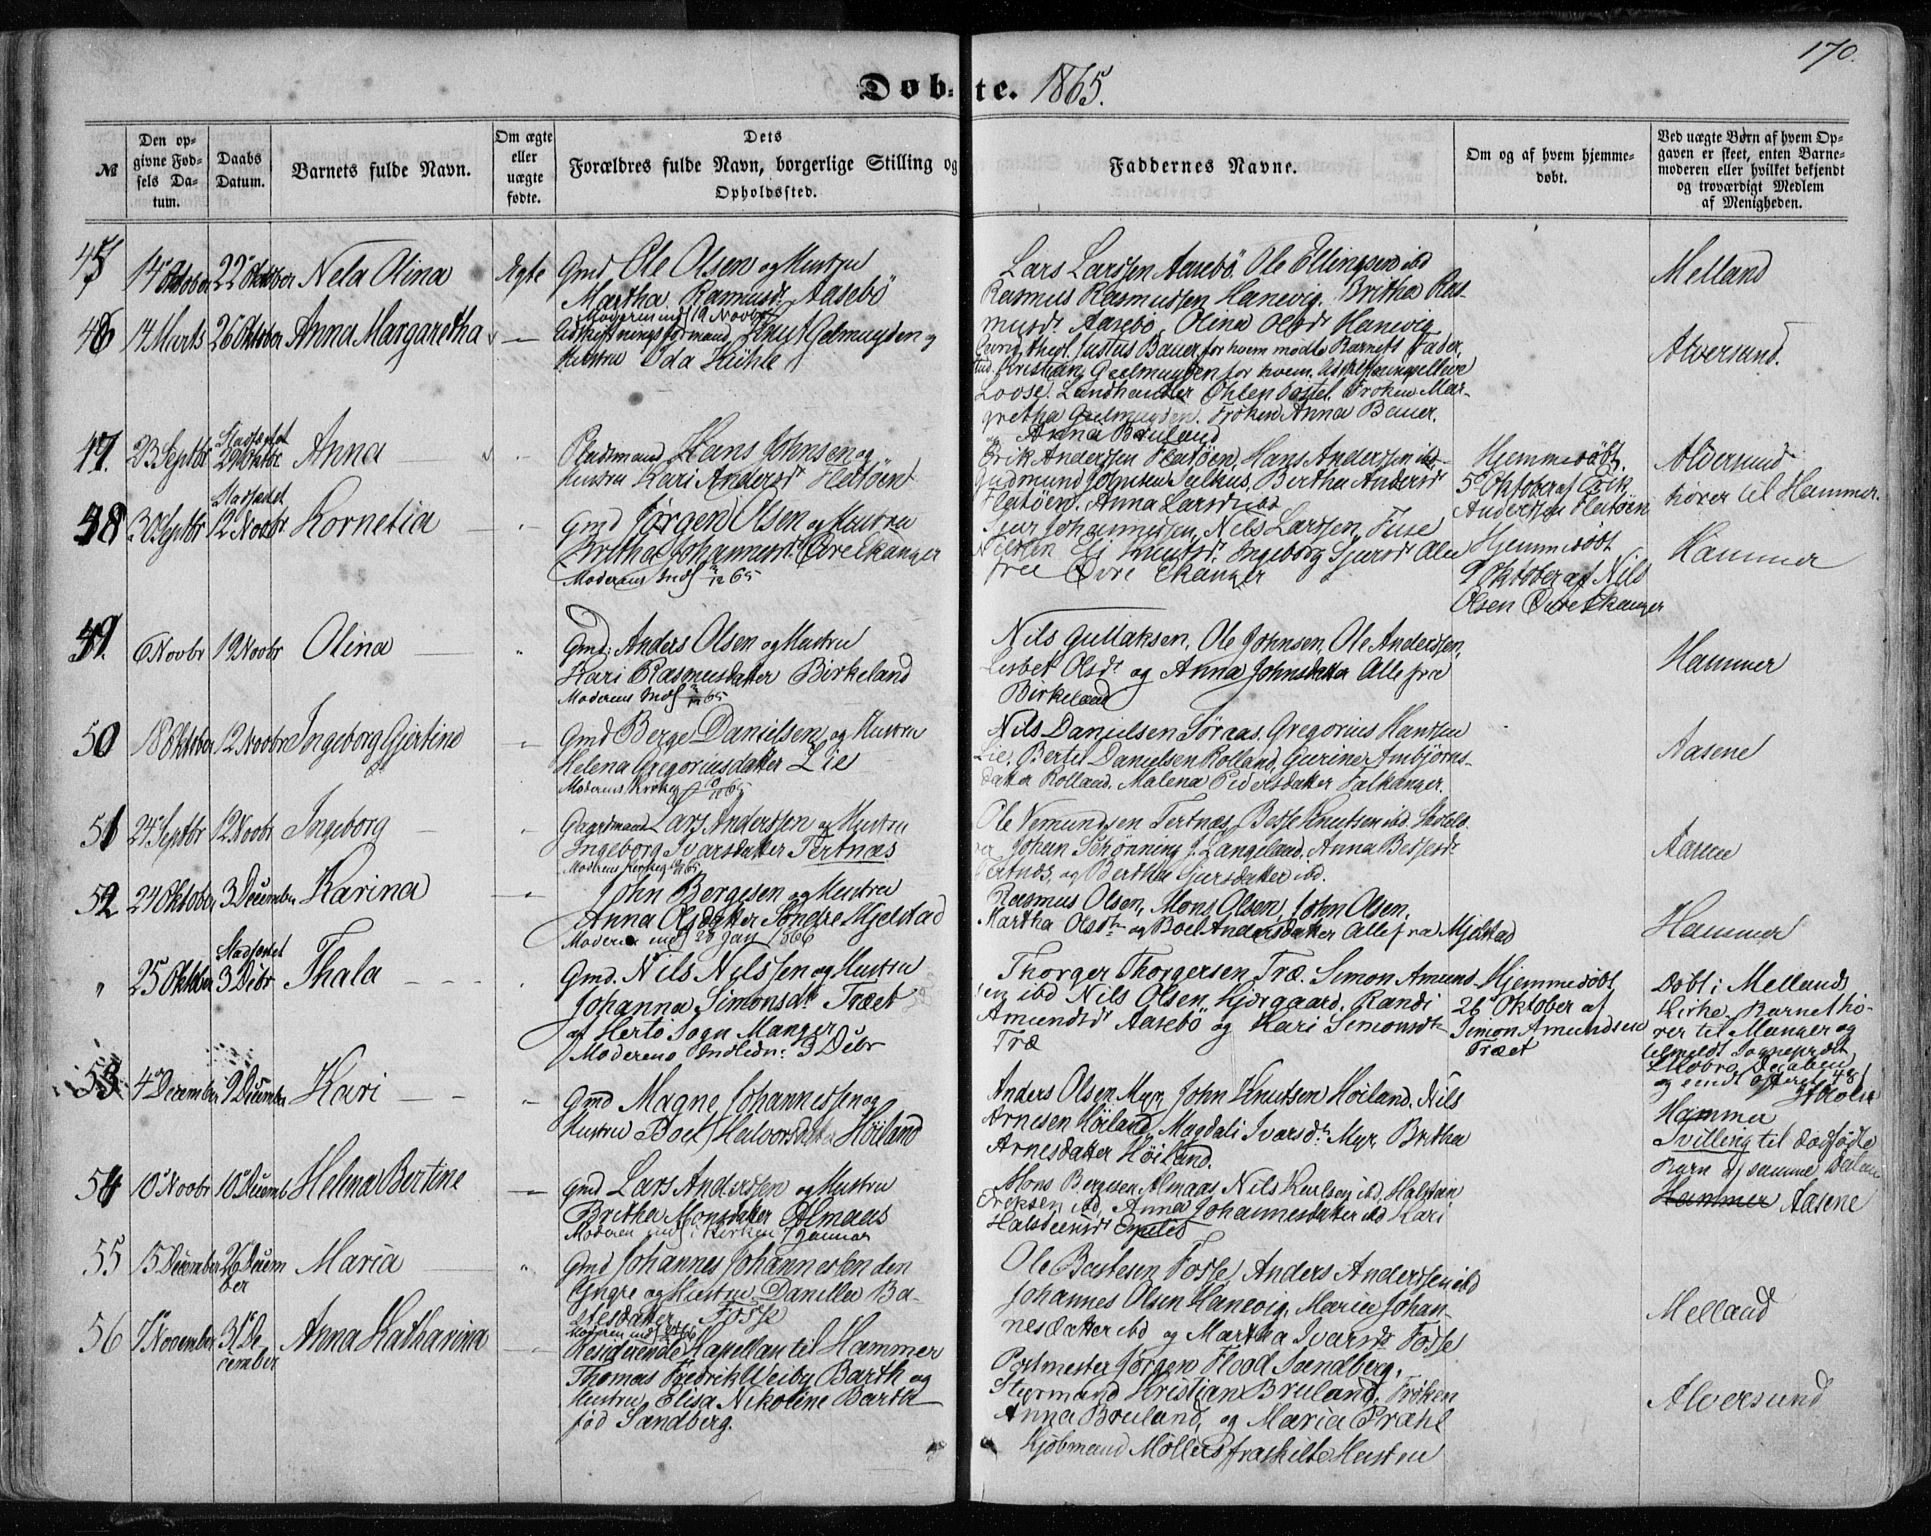 170.
Døbte. 1865.
№
Den opgivne Fødsels Datum.
Daabs Datum.
Barnets fulde Navn.
Om ægte eller uægte fødte.
Dets Forældres fulde Navn, borgerlige Stilling og Opholdssted.
Faddernes Navne.
Om og af hvem hjemmedøbt.
Ved uægte Børn af hvem Opgaven er skeet, enten Barnemoderen eller hvilket bekjendt og troværdigt Medlem af Menigheden.
45 14 Oktober 22 Oktober Nela Olina Ægte
Gmd Ole Olsen og Hustru
Martha Rasmusdr Aasebö
Moderens inds 19 Novbr
Lars Larssen Aasebö. Ole Ellingsen ibd
Rasmus Rasmussen Hanevig. Britha Ras-
musdr Aasebö, Olina Olsdr Hanevig
Melland
46 14 Marts 26 Oktober Anna Margaretha
Udskiftningsformand Knut Gelmuyden og
Hustru Oda Kühle
Justus Bauer for hvem mødte Barnets Fader,
stud. Kristian Geelmuyden for hvem
Loose. Landhandler Ohlen Tostel. Frøken Mar-
gretha Geelmuyden. Frøken Anna Bauer.
og Anna Bruland
Alversund.
47. 23 Septbr Stadfæstet 29 Oktbr Anna
Pladsmand Hans Johnsen og
Hustru Kari Andersdr Flatöen
Erik Anderssen Flatöen, Hans Anderssen ibd.
Gudmund Johnsen Bertha Andersdr
Flatöen. Anna Larsdr ibd
Hjemmedöbt
5 Oktober af Erik
Anderssen Flatöen
Alversund
hörer til Hammer.
48 30 Septbr Stadfæstet 12 Novbr Kornelia
Gmd Jörgen Olsen og Hustru
Britha Johannesdr Övre Ekanger
Moderens Inds 12/11 65
Sjur Johannessen, Nils Larssen, Fuse
Nilssen Ei Knutsdr Ingeborg Sjursdr Alle
fra Övre Ekanger
Hjemmedöbt
9 Oktober af Nils
Olsen Övre Ekanger
Hammer
49. 6 Novbr 19 Novbr Olina
Gmd: Anders Olsen og Hustru
Kari Rasmusdatter Birkeland
Moderens Inds
Nils Gullaksen, Ole Johnsen, Ole Anderssen,
Lisbet Olsdr og Anna Johnsdatter Alle fra
Birkeland
Hammer
50 18 Oktober 12 Novbr Ingeborg Gjertine
Gmd Berge Danielsen og Hustru
Helena Gregoriusdatter Lie
Moderens Kirkeg
Nils Danielsen Söraas, Gregorius Hanssen
Lie, Bertil Danielsen Rolland, Gurine Ambjörns-
datter Rolland, Malena Pedersdatter Falkanger.
Aasene
51 24 Septbr 12 Novbr Ingeborg
Gaardmand Lars Anderssen og Hustru
Ingeborg Ivarsdatter Tertnæs
Moderens Kirkeg
Ole Nemundsen Tertnæs, Besse Knutsen ibd.
Johan Schönning J. Langeland. Anna Bessesdr
Tertnæs, og Bertha Sjursdatter ibd.
Aasene
52 24 Oktober 3 December Karina
John Bergesen og Hustru
Anna Olsdatter Söndre Mjelstad
Moderen inds 28 Jan 1866
Rasmus Olsen, Mons Olsen, John Olsen.
Martha Olsdtr og Boel Andersdatter Alle fra Mjelstad
Hammer
" 25 Oktober Stadfæstet 3 Debr Thala
Gmd. Nils Nilssen og Hustru
Johanna Simonsdr Træet
af Hertö Sogn Manger
Moderens Indledn: 3 Debr
Thorger Thorgersen Træ. Simon Amund-
sen ibd Nils Olsen Kjærgaard, Randi
Amundsdr Aasebö og Kari Simonsdtr
Træ
Hjemmedöbt
26 Oktober af
Simon Amundsen
Træet
Döbt i Mellands
Kirke. Barnet hö-
rer til Manger og
tilmeldt Sognepræst
53 4 December 9 December Kari
Gmd Magne Johannessen og
Hustru Boel Halvorsdatter Höiland
Anders Olsen Myr, John Knutsen Höiland. Nils
Arnesen Höiland, Magdali Ivarsdtr Myr. Britha
Arnesdatter Höiland.
Hammer
Tvilling til dödfödte
Barn af samme
54 10 Novbr 10 Decemb Helena Bertine
Gmd Lars Anderssen og Hustru
Britha Monsdatter Almaas
Moderen inds i Kirken 7 Januar
Mons Bergesen Almaas Nils Karlsen ibd, Halstein
Eriksen ibd, Anna Johannesdatter ibd Kari
Hammer Aasene
55 15 December 26 December Maria
Gmd Johannes Johannessen den
Yngre og Hustru Daniella Ba-
stesdatter Fosse
Ole Bastesen Fosse, Anders Anderssen ibd
Johannes Olsen Hanevig, Maria Johan-
nesdatter ibd og Martha Ivarsdr Fosse
Mellaad
56 7 November 31 December Anna Katharina
Residerende Kapellan til Hammer
Thomas Fredrik Weiby Barth og
Hustru Elisa Nikoline Barth
föd Sandberg.
Postmester Jörgen Flood Sandberg,
Styrmand Kristian Bruland, Fröken
Anna Bruland, og Maria Prahl
Kjöbmand Möllers fraskilte Hustru
Alversund